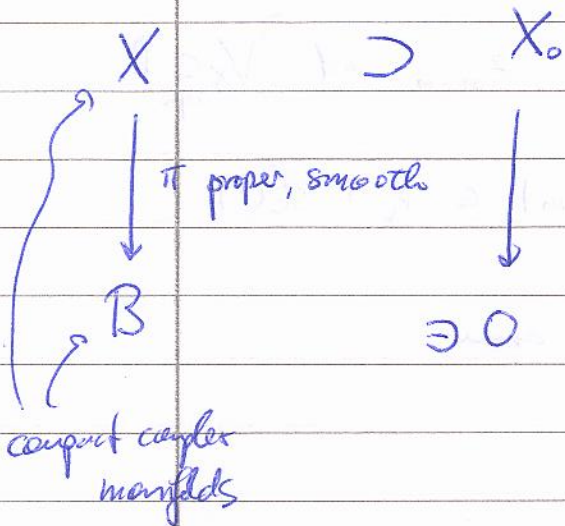 X ⊃ X₀
π proper, smooth
B ∋ 0
compact complex
manifolds